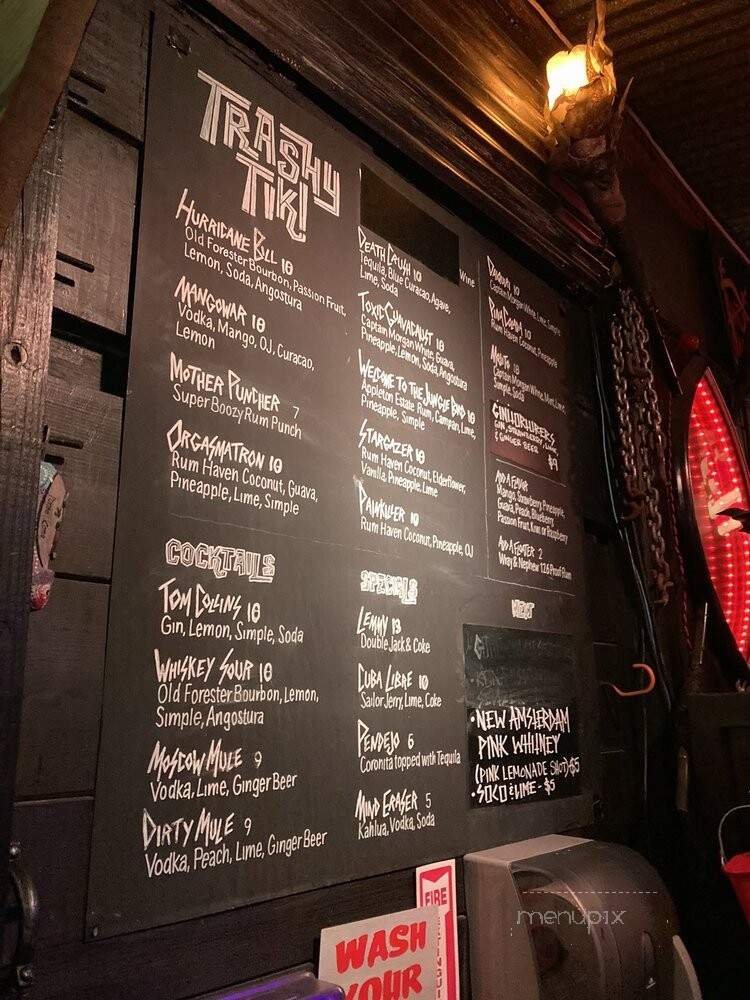 TRASHY
TIKI
HURRICANE BILL 10
Old Forester Bourbon, Passion Fruit,
Lemon, Soda, Angostura
MANGOWAR 10
Vodka, Mango, OJ, Curacao,
Lemon
MOTHER PUNCHER 7
Super Boozy Rum Punch
ORGASMATRON 10
Rum Haven Coconut, Guava,
Pineapple, Lime, Simple
COCKTAILS
TOM COLLINS 10
Gin, Lemon, Simple, Soda
WHISKEY SOUR 10
Old Forester Bourbon, Lemon,
Simple, Angostura
MOSCOW MULE 9
Vodka, Lime, Ginger Beer
DIRTY MULE 9
Vodka, Peach, Lime, Ginger Beer
Wine
DEATH CRUSH 10
Tequila, Blue Curacao, Agave,
Lime, Soda
TOXIC GUAVACALIST 10
Captain Morgan White, Guava,
Pineapple, Lemon, Soda, Angostura
WELCOME TO THE JUNGLE BIRD 10
Appleton Estate Rum, Campari, Lime,
Pineapple, Simple
STARGAZER 10
Rum Haven Coconut, Elderflower,
Vanilla, Pineapple, Lime
PAINKILLER 10
Rum Haven Coconut, Pineapple, OJ
SPECIALS
LEMMY 13
Double Jack & Coke
CUBA LIBRE 10
Sailor Jerry, Lime, Coke
PENDEJO 6
Coronita topped with Tequila
MIND ERASER 5
Kahlua, Vodka, Soda
10
Captain Morgan White, Lime, Simple
PINA COLADA 10
Rum Haven Coconut, Pineapple
MOJITO 10
Captain Morgan White, Mint, Lime,
Simple, Soda
GIN, STRAWBERRY, LIME,
& GINGER BEER $9
ADD A FLAVOR
Mango, Strawberry, Pineapple,
Guava, Peach, Blueberry,
Passion Fruit, Kiwi or Raspberry
ADD A FLOATER 2
Wray & Nephew 126 Proof Rum
MEAT
• NEW AMSTERDAM
PINK WHITNEY
(PINK LEMONADE SHOT) $5
• SOCO & LIME - $5
FIRE
WASH
YOUR
menupix